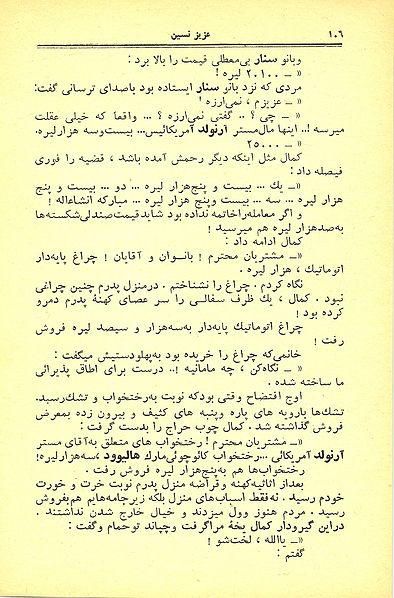 ۱۰۶ عزیز نسین
وبانو سنار بی‌معطلی قیمت را بالا برد :
« ــ ۲۰۱۰۰ لیره !
مردی که نزد بانو سنار ایستاده بود باصدای ترسانی گفت:
« ــ عزیزم ، نمی‌ارزه !
« ــ چی ؟ .. گفتی نمی‌ارزه ؟ ... واقعاً که خیلی عقلت
میرسه !.. اینها مال‌مستر آرنولد آمریکائیس... بیست‌وسه هزارلیره.
« ــ ۲۵۰۰۰
کمال مثل اینکه دیگر رحمش آمده باشد ، قضیه را فوری
فیصله داد :
«ــ یك ... بیست و پنج‌هزار لیره ... دو ... بیست و پنج
هزار لیره ... سه ... بیست وپنج هزار لیره ... مبارکه انشاءاله !
و اگر معامله‌راخاتمه نداده بود شاید‌قیمت‌صندلی‌شکسته‌ها
به‌صدهزار لیره هم میرسید !
کمال ادامه داد :
«ــ مشتریان محترم ! بانــوان و آقایان ! چراغ پایه‌دار
اتوماتیك ، هزار لیره .
نگاه کردم . چراغ را نشناختم . درمنزل پدرم چنین چراغی
نبود . کمال ، یك ظرف سفالــی را سر عصای کهنهٔ پدرم دمرو
کرده بود !
چراغ اتوماتیك پایه‌دار به‌سه‌هزار و سیصد لیره فروش
رفت !
خانمی‌که چراغ را خریده بود به‌پهلودستیش میگفت :
« ــ نگاه‌کن ، چه مامانیه !.. درست برای اطاق پذیرائی
ما ساخته شده .
اوج افتضاح وقتی بودکه نوبت به‌رختخواب و تشك‌رسید.
تشك‌ها بارویه های پاره وپنبه های کثیف و بیرون زده بمعرض
فروش گذاشته شد . کمال چوب حراج را بدست گرفت :
«ــ مشتریان محترم ! رختخواب های متعلق به‌آقای مستر
آرنولد آمریکائی ...رختخواب کائوچوئی‌مارك هالیوود ،سه‌هزارلیره!
رختخواب‌ها هم به‌پنج‌هزار لیره فروش رفت .
بعداز اثاثیه‌کهنه وقراضه منزل پدرم نوبت خرت و خورت
خودم رسید . نه‌فقط اسباب‌های منزل بلکه زیرجامه‌هایم هم‌بفروش
رسید . مردم هنوز وول میزدند و خیال خارج شدن نداشتند .
دراین گیرودار کمال یخهٔ مراگرفت وچپاند توحمام وگفت :
« ــ یاالله ، لخت‌شو !
گفتم :